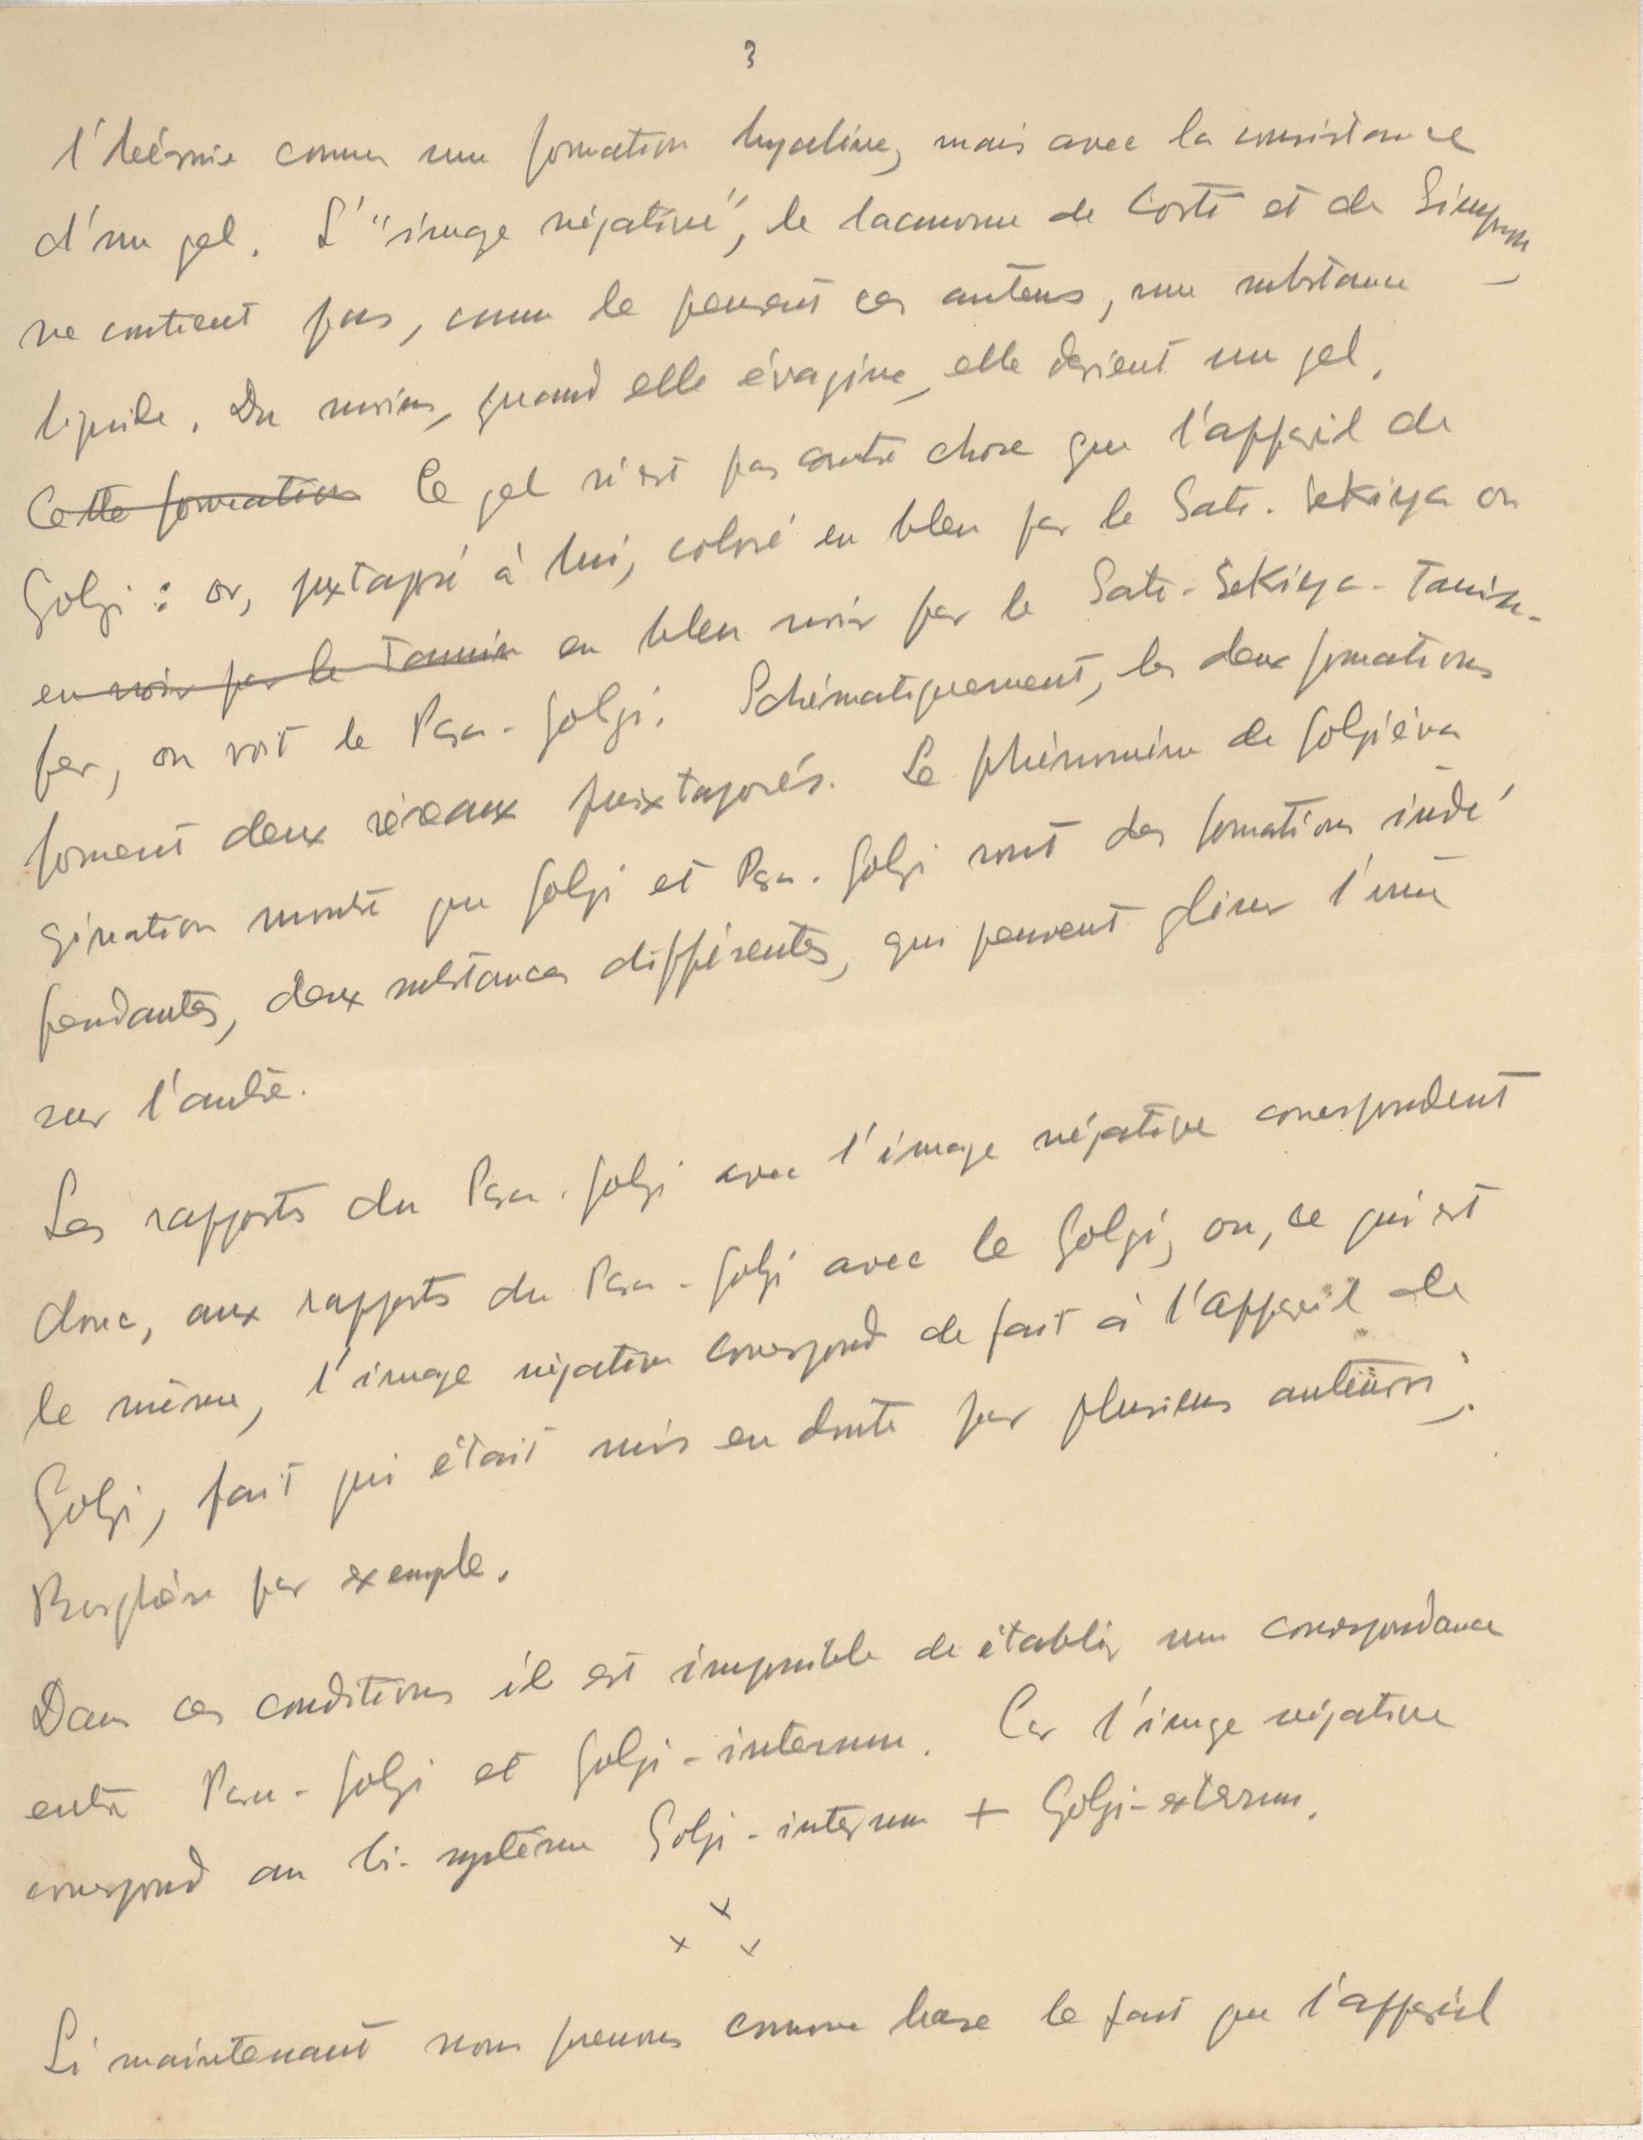 3
l'hérnie comme une formation hyaline, mais avec la consistance
d'un gel. L'"image négative", le lacunome de Corti et de Simpson
ne contient pas, comme le pensent ces auteurs, une substance
liquide. Du moins, quand elle évagine, elle devient un gel.
Cette formation Ce gel n'est pas autre chose que l'appareil de
Golgi : or, juxtaposé à lui, coloré en bleu par le Sato-Sekiya ou
en noir par le Tannin en bleu noir par le Sato-Sekiya-Tannin-
fer, on voit le Para-Golgi. Schématiquement, les deux formations
forment deux réseaux juixtaposés. Le phénomène de Golgiéva-
gination montre que Golgi et Para-Golgi sont des formations indé-
pendantes, deux substances différentes, qui peuvent glisser l'une
sur l'autre.
Les rapports du Para-Golgi avec l'image négative correspondent
donc, aux rapports du Para-Golgi avec le Golgi, ou, ce qui est
le même, l'image négative correspond de fait à l'appareil de
Golgi, fait qui était mis en doute par plusieurs auteurs,
par exemple.
Dans ces conditions il est impossible de établir une correspondance
entre Para-Golgi et Golgi-internum. Car l'image négative
correspond au bi-système Golgi-internum + Golgi-externum.
x
x x
Si maintenant nous prenons comme base le fait que l'appareil